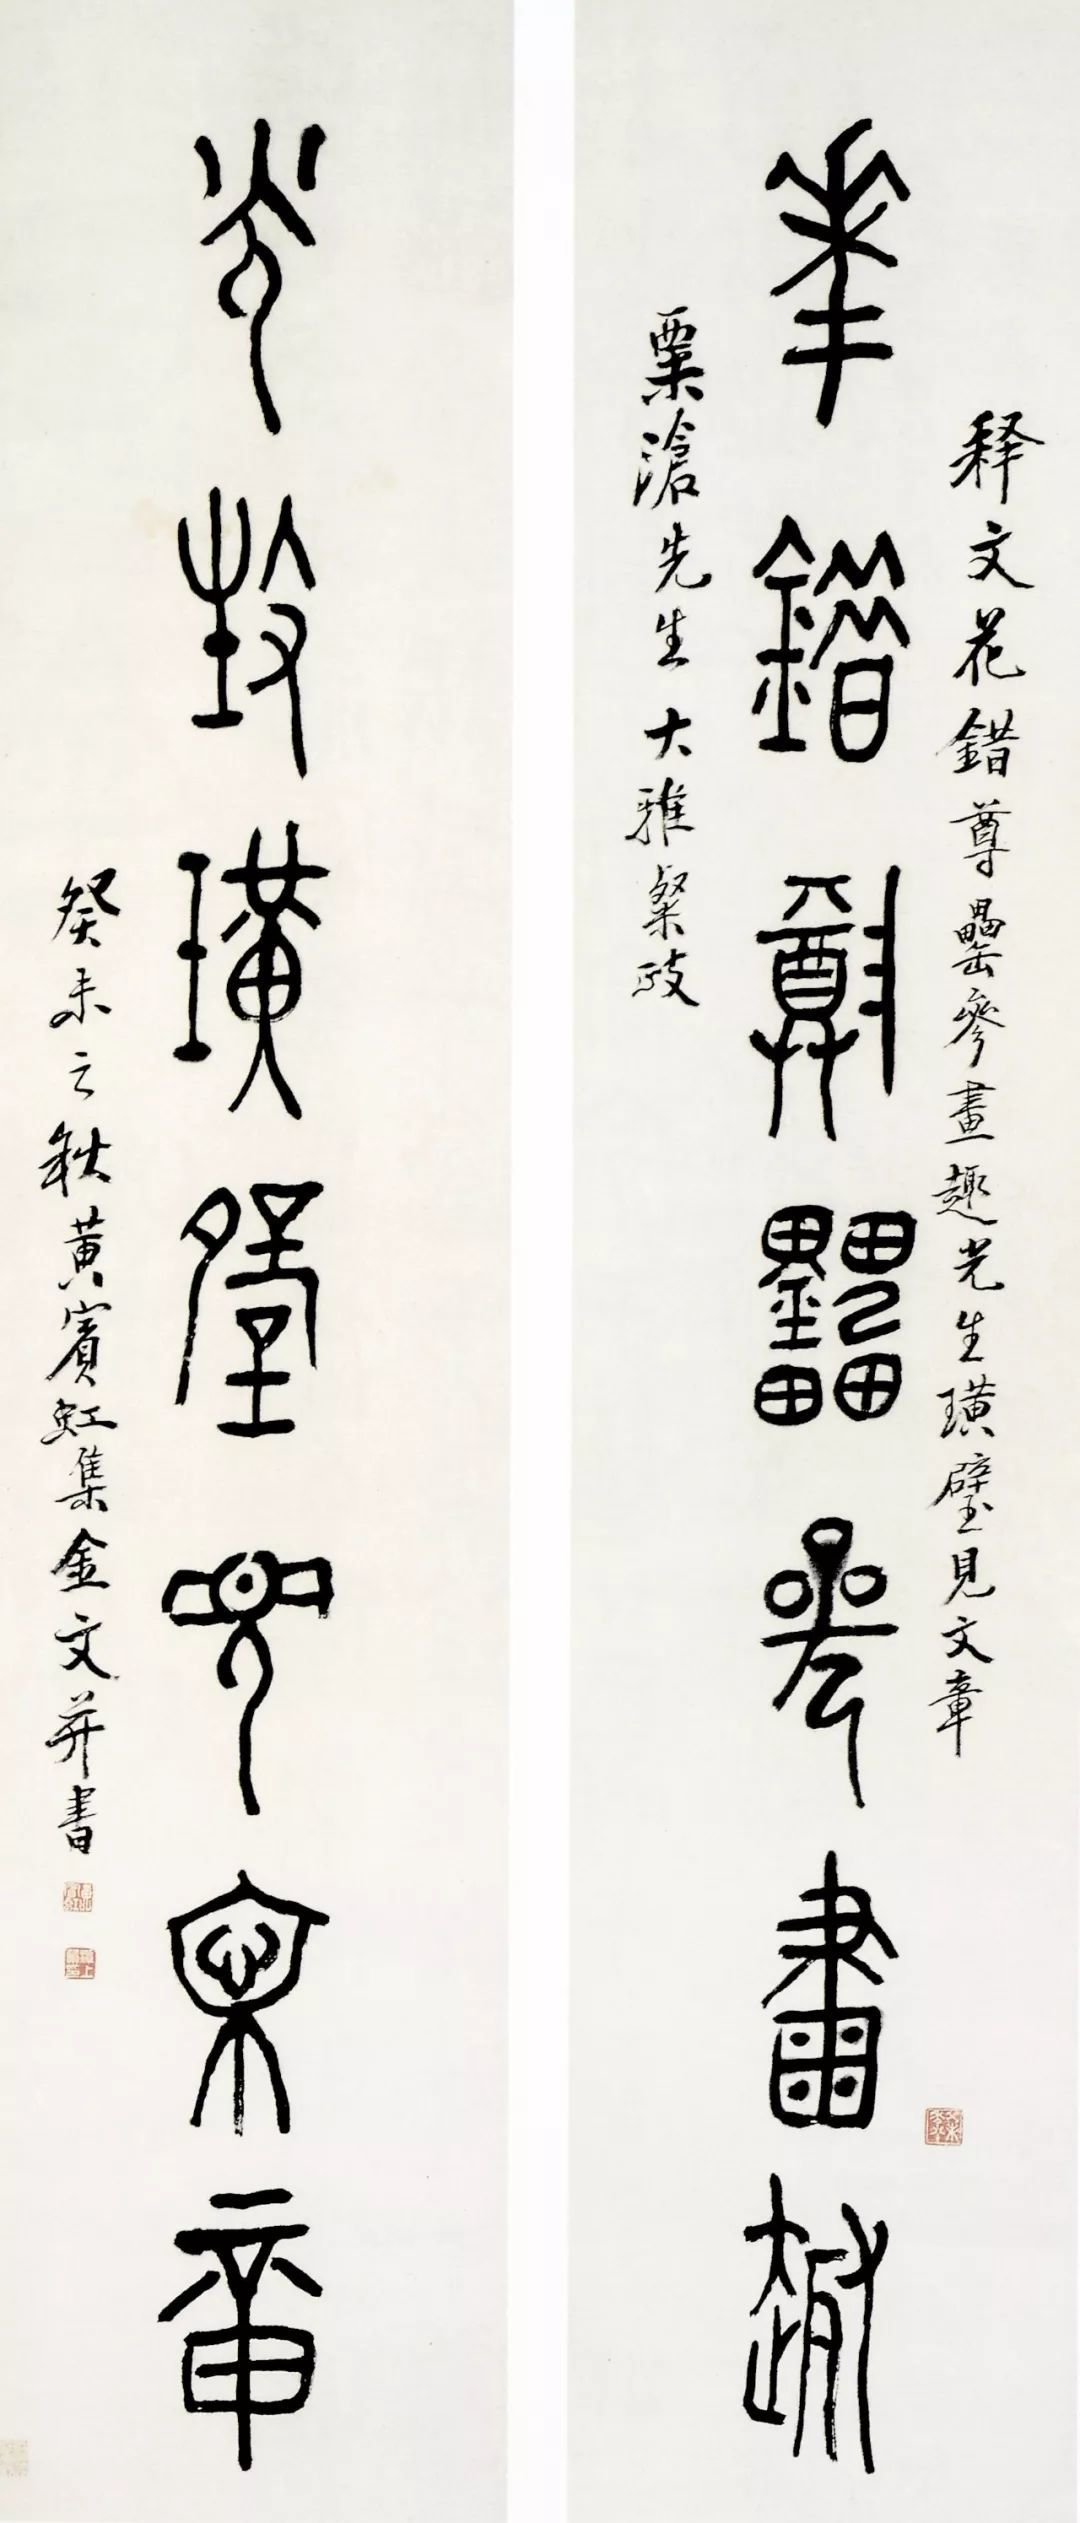 释文花錯尊罍參畫趣光生璜璧見文章
花錯尊罍參畫趣
滄先生大雅粲政
光生璜璧見文章
癸未之秋黄賓虹集金文并書